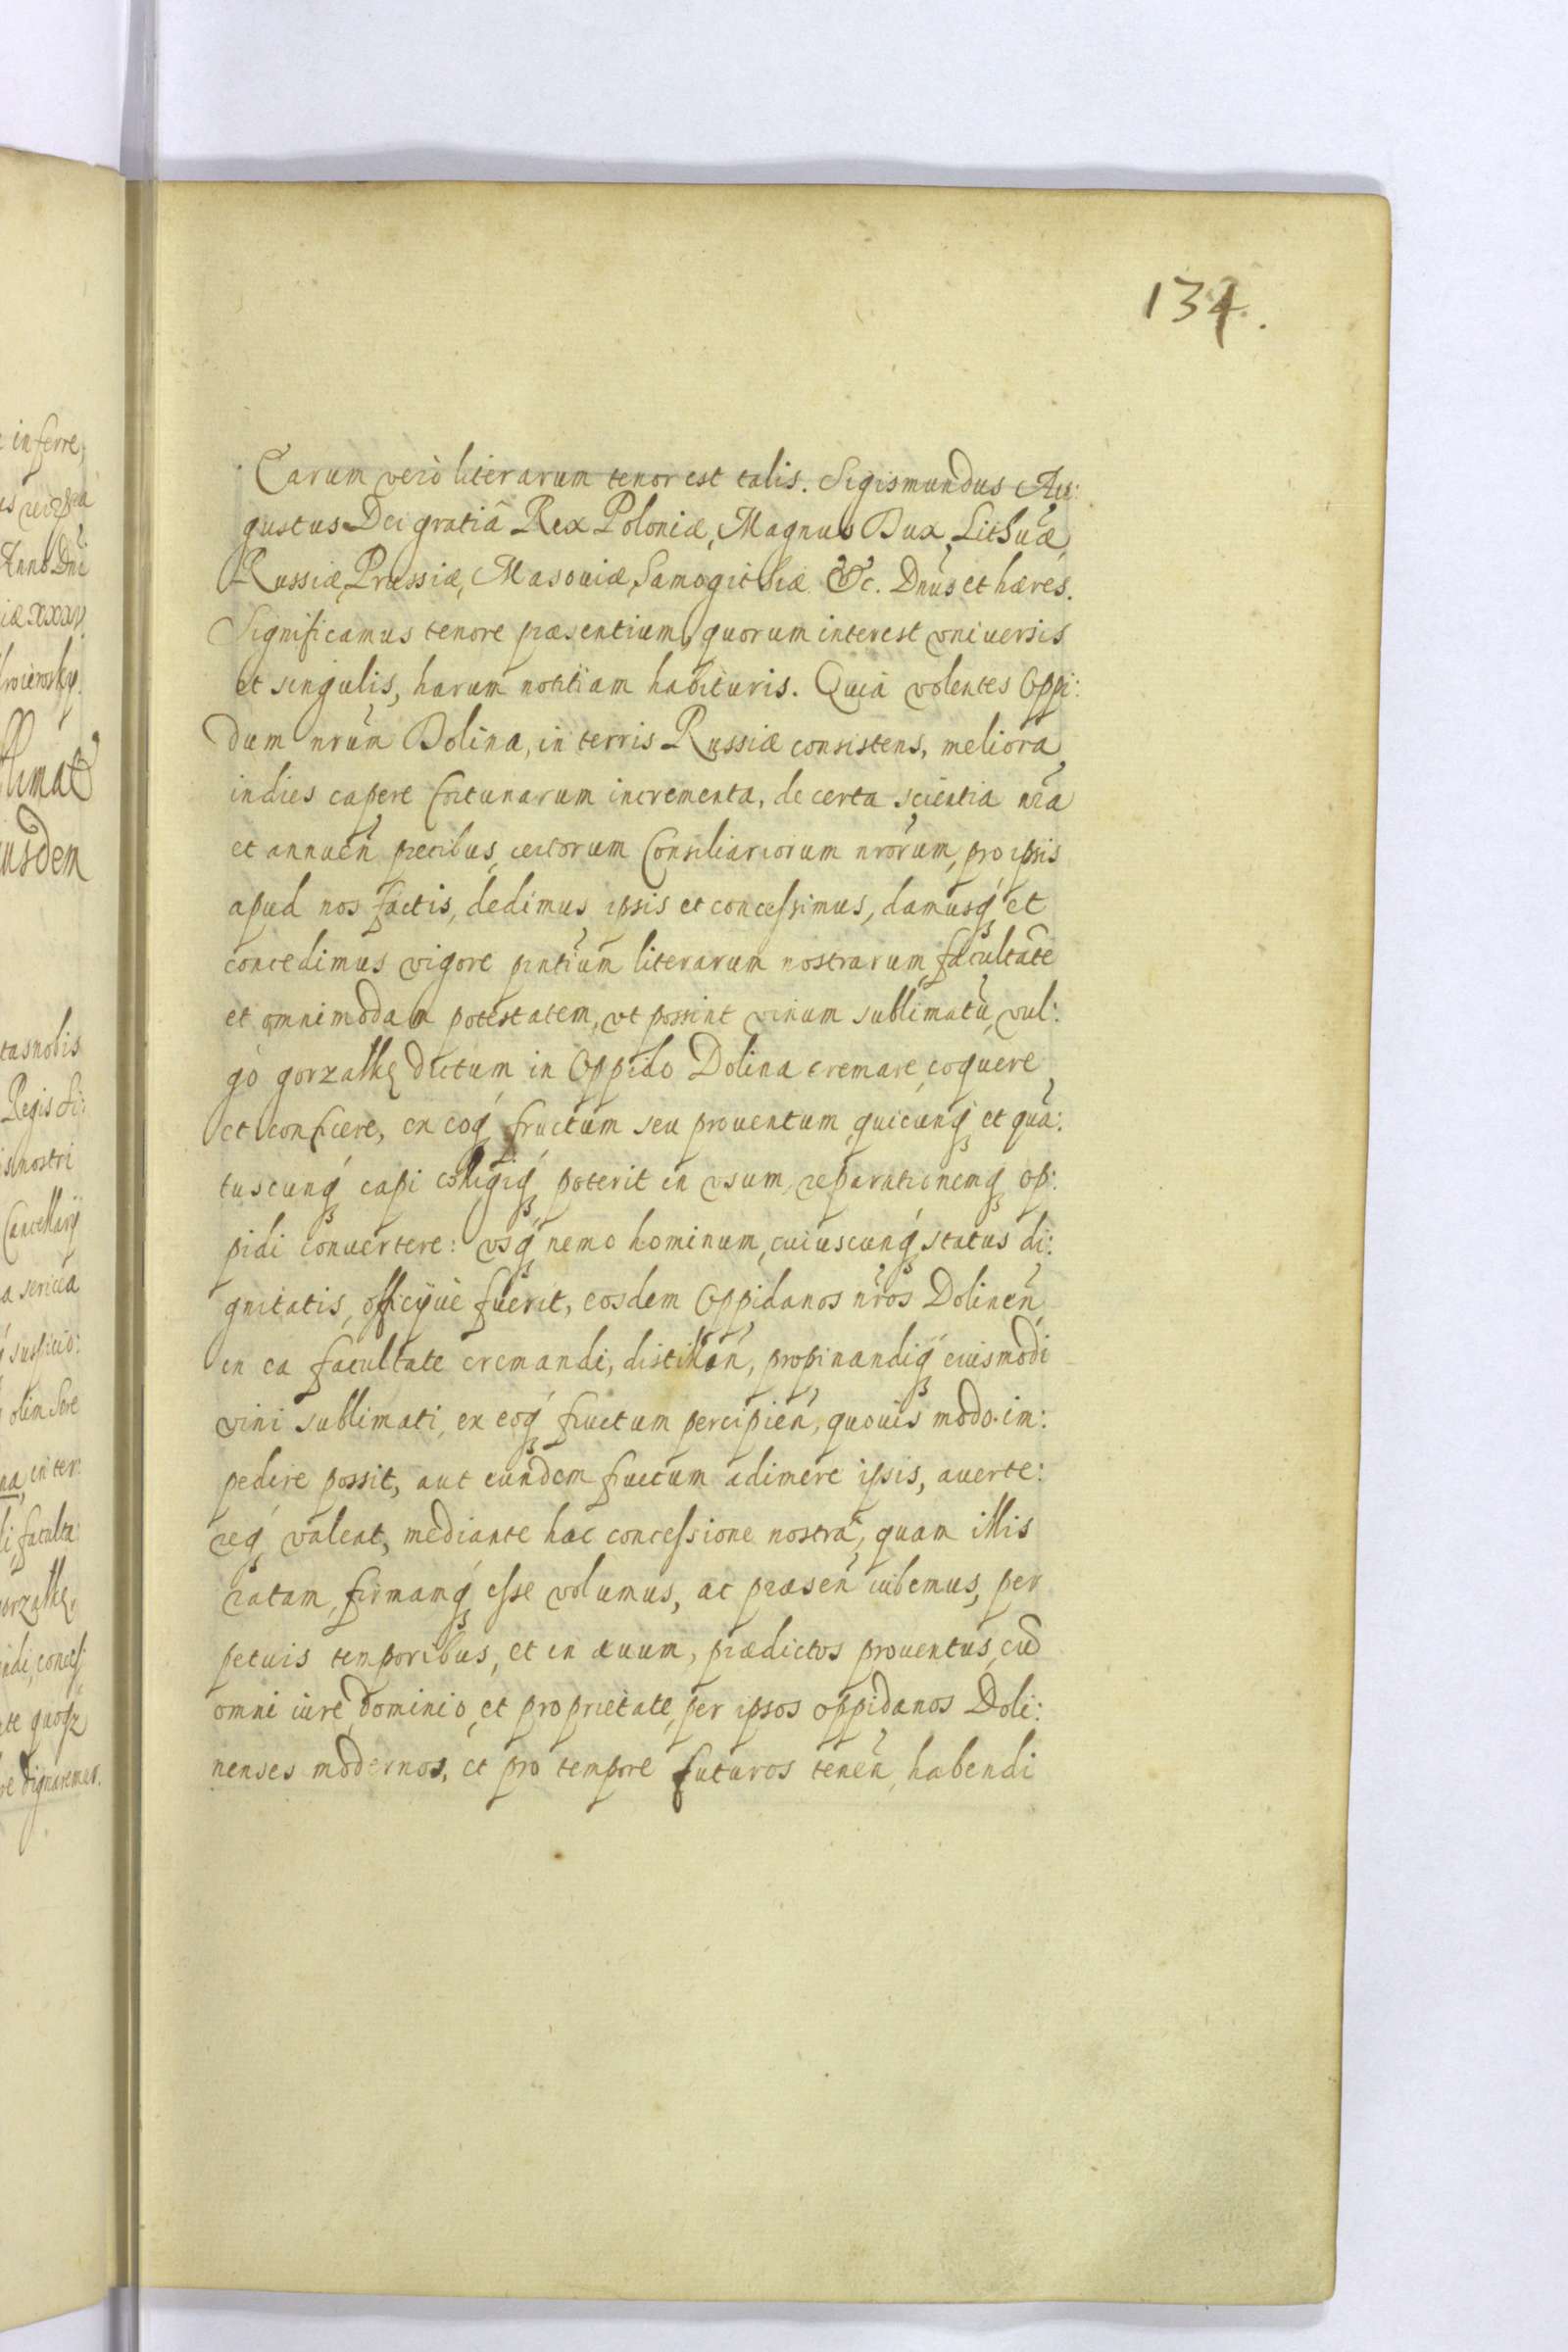 134.
Earum verò literarum tenor est talis. Sigismundus Au:
gustus Dei gratiâ Rex Poloniæ, Magnus Dux Lithuæ,
Russiæ, Prussiæ, Masouiæ, Samogithiæ &c. Dnus et hæres.
Significamus tenore præsentium, quorum interest vniuersis
et singulis, harum notitiam habituris. Quia volentes Oppi:
dum nrum Dolina, in terris Russiæ consistens, meliora
indies capere fortunarum incrementa, de certa scientia nra
et annuen precibus certorum Consiliariorum nrorum, pro ipsis
apud nos factis, dedimus ipsis et concessimus, damusq́ et
concedimus vigore pntium literarum nostrarum facultate
et omnimodam potestatem, vt possint vinum sublimatū, vul:
gò gorzalkę dictum in Oppido Dolina cremare, coquere
et conficere, ex eoq́ fructum seu prouentum, quicunq́ et qua:
tuscunq́ capi colligiq́ poterit in vsum, reparationemq́ op:
pidi conuertere: vsq́ nemo hominum, cuiuscunq́ status di:
gnitatis, officÿuè fuerit, eosdem Oppidanos nros Dolinen
in ea facultate cremandi, distillan, propinandiq́ eiusmodi
vini sublimati, ex eoq́ fructum percipien, quouis modo im:
pedire possit, aut eundem fructum adimere ipsis, auerte:
req́ valeat, mediante hac concessione nostrâ, quam illis
ratam, firmamq́ esse volumus, ac præsen iubemus, per
petuis temporibus, et in æuum, prædictos prouentus, cū
omni iure, dominio, et proprietate, per ipsos oppidanos Doli:
nenses modernos, et pro tempore futuros tenen, habendi